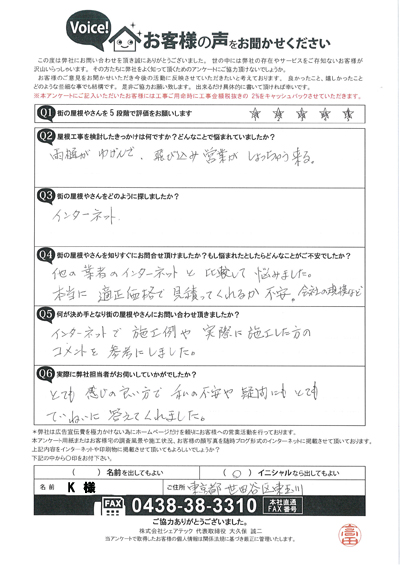 Voice!
お客様の声をお聞かせください
この度は弊社にお問い合わせを頂き誠にありがとうございました。世の中には弊社の存在やサービスをご存知ないお客様が
沢山いらっしゃいます。その方たちに弊社をよく知って頂くためのアンケートにご協力頂けないでしょうか。
お客様のご意見をお聞かせいただき今後の活動に反映させていただきたいと考えております。良かったこと、嬉しかったこと
どのような些細な事でも結構です。是非ご協力お願い致します。出来るだけ具体的に書いて頂ければ幸いです。
※本アンケートにご記入いただいたお客様には工事ご用命時に工事金額税抜きの 2%をキャッシュバックさせていただきます。
Q1 街の屋根やさんを5段階で評価をお願いします ★ ★ ★ ★ ★
Q2 屋根工事を検討したきっかけは何ですか?どんなことで悩まれていましたか?
雨樋が ゆがんで、飛び込み営業が しょっちゅう来る。
Q3 街の屋根やさんをどのように探しましたか?
インターネット.
Q4 街の屋根やさんを知りすぐにお問合せ頂けましたか?もし悩まれたとしたらどんなことがご不安でしたか?
他の業者のインターネットと比較して悩みました。
本当に適正価格で見積ってくれるか不安。会社の規模など
Q5 何が決め手となり街の屋根やさんにお問い合わせ頂きましたか?
インターネットで施工例や実際に施工した方の
コメントを参考にしました。
Q6 実際に弊社担当者がお伺いしていかがでしたか?
とても感じの良い方で私の不安や疑問にもとても
ていねいに答えてくれました。
*弊社は広告宣伝費を極力かけない為にホームページだけを頼りお客様への営業活動を行っております。
本アンケート用紙またはお客様宅の調査風景や施工状況、お客様の顔写真を随時ブログ形式のインターネットに掲載させて頂いております。
上記内容をインターネットや印刷物に掲載させて頂いてもよろしいでしょうか?
下記の中から〇印をお付下さい。
( )名前を出してもよい (○)イニシャルなら出してもよい
名前 K 様 ご住所 東京都世田谷区東玉川
FAX 0438-38-3310 本社直通 FAX番号
ご協力ありがとうございました。
株式会社シェアテック 代表取締役 大久保 誠二
当アンケートで取得したお客様の個人情報は関係法規に基づき厳正に管理いたします。